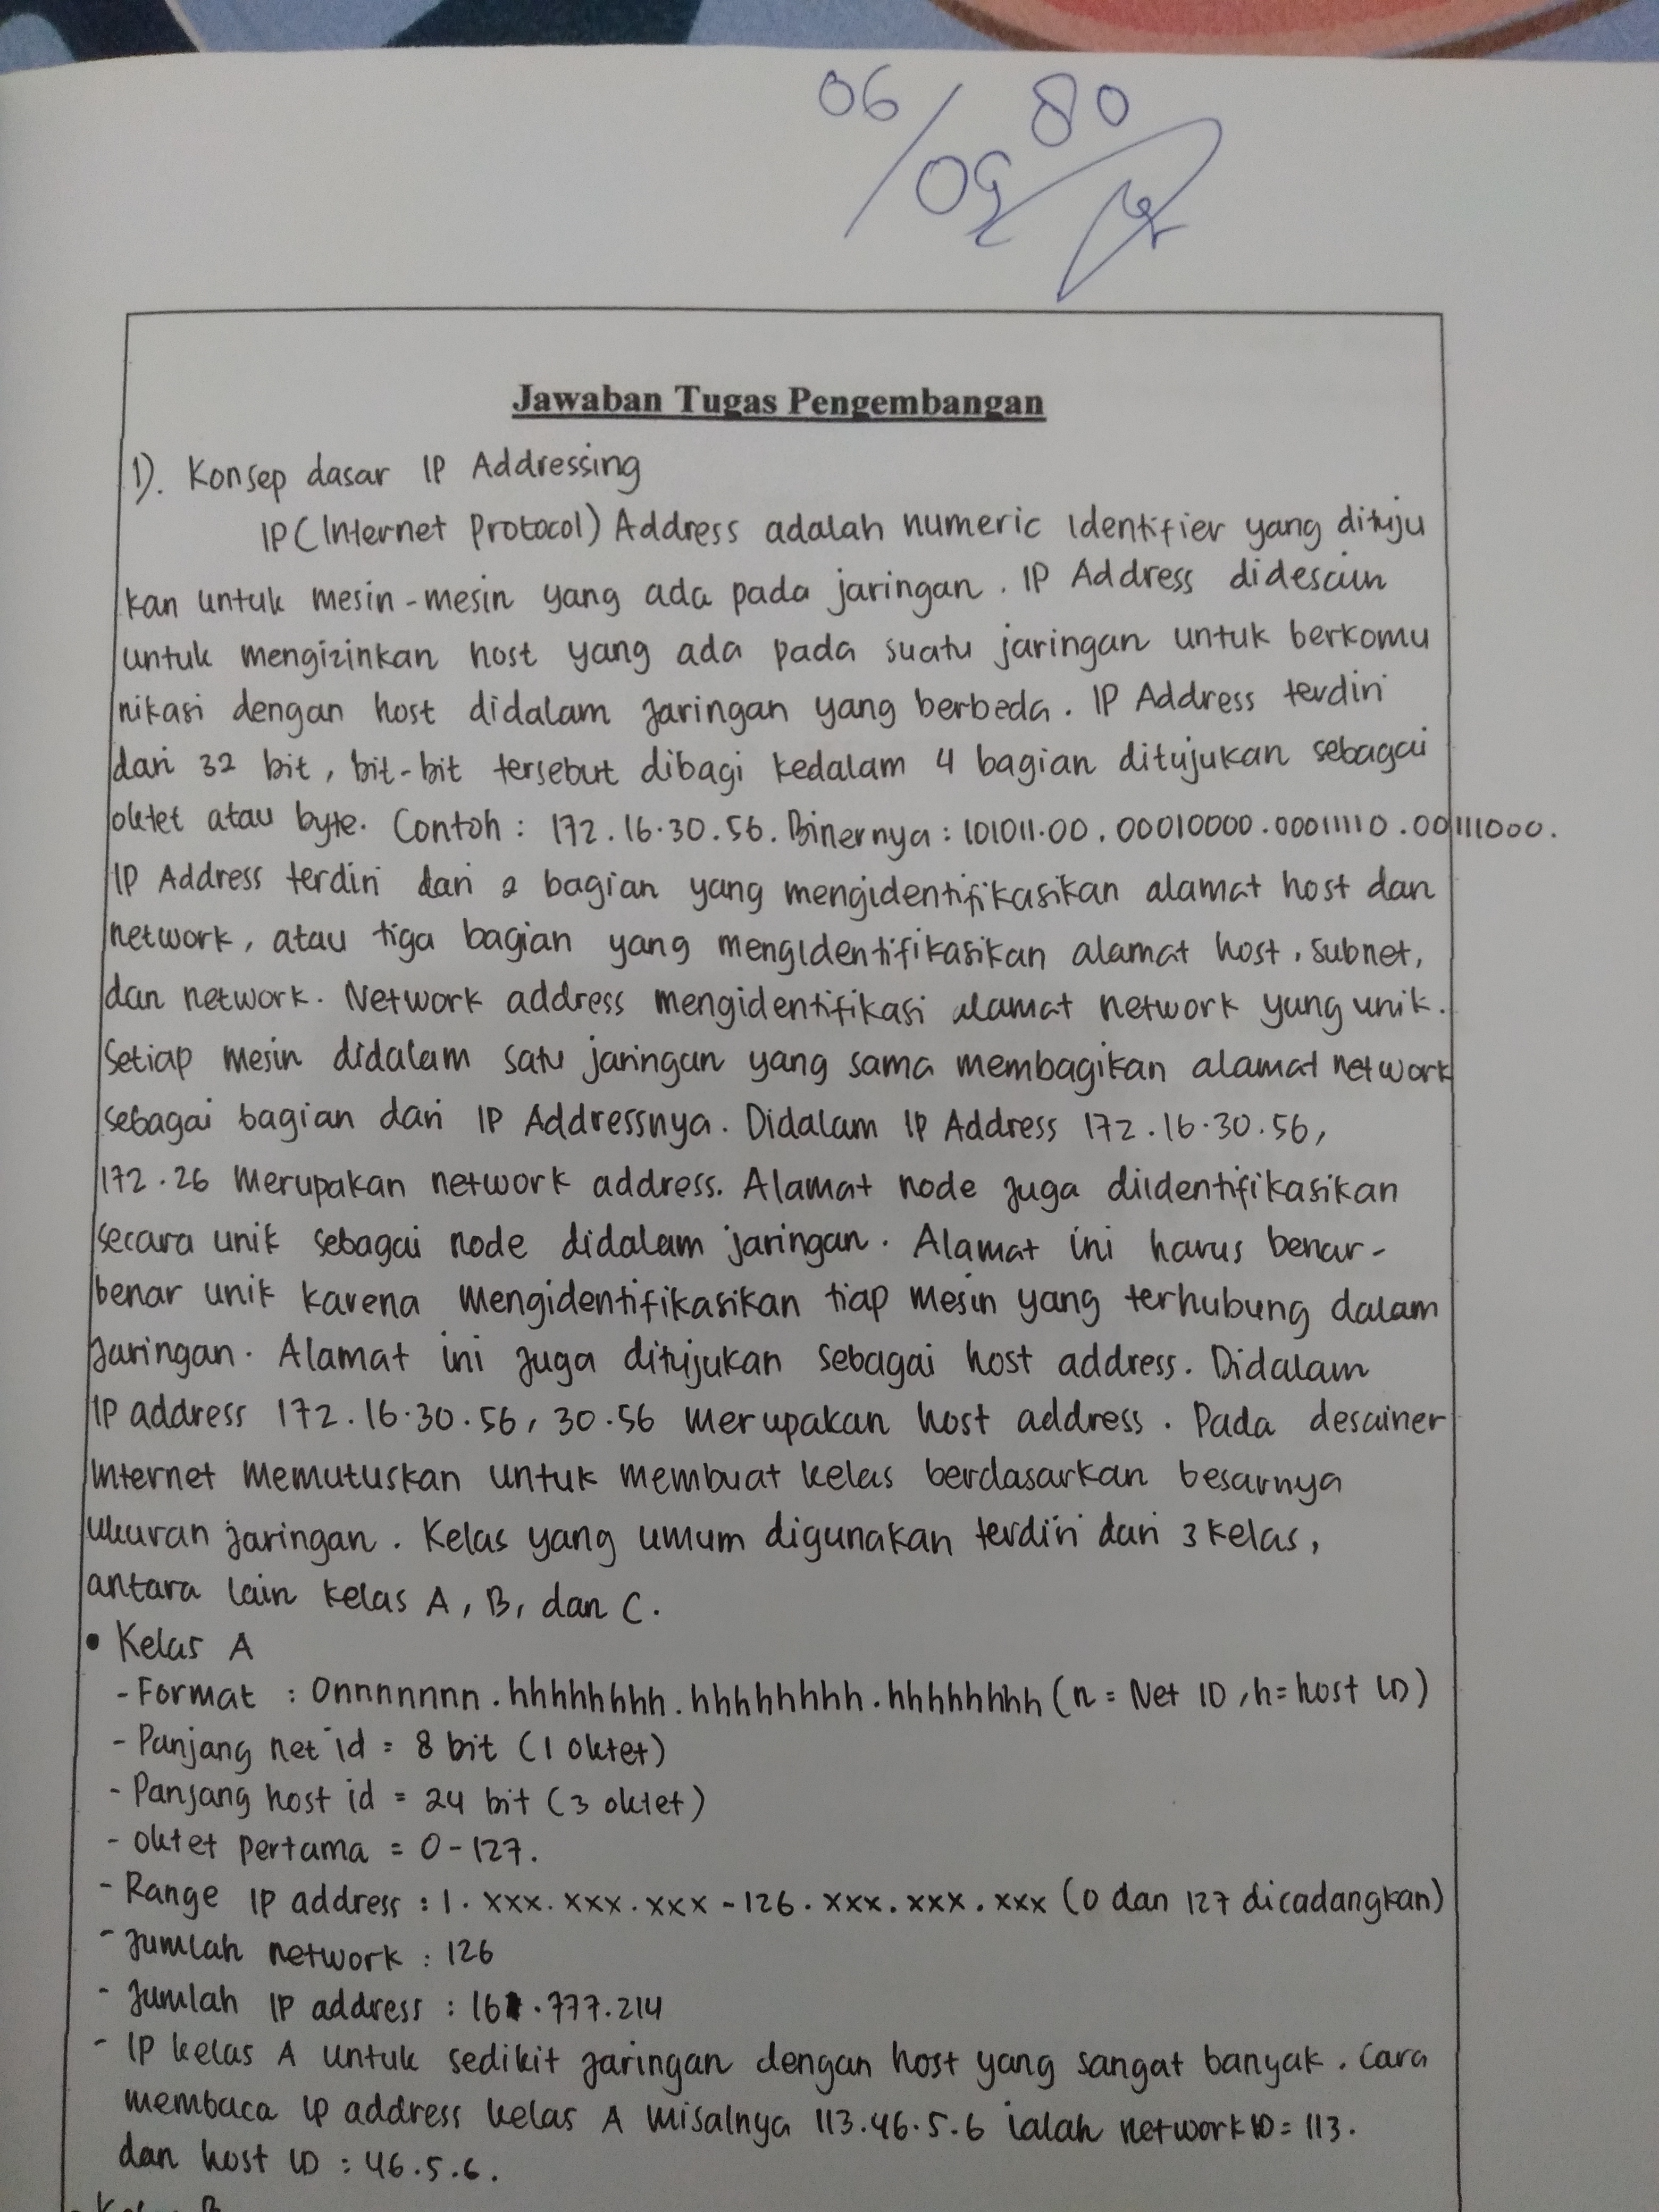 06/09 80
Jawaban Tugas Pengembangan
1). Konsep dasar IP Addressing
IP (Internet Protocol) Address adalah numeric identifier yang dituju
kan untuk mesin-mesin yang ada pada jaringan. IP Address didesain
untuk mengizinkan host yang ada pada suatu jaringan untuk berkomu
nikasi dengan host didalam jaringan yang berbeda. IP Address terdiri
dari 32 bit, bit-bit tersebut dibagi kedalam 4 bagian ditujukan sebagai
oktet atau byte. Contoh : 172.16.30.56. Binernya : 101011.00.00010000.00011110.00111000.
IP Address terdiri dari 2 bagian yang mengidentifikasikan alamat host dan
network, atau tiga bagian yang mengidentifikasikan alamat host, subnet,
dan network. Network address mengidentifikasi alamat network yang unik.
Setiap mesin didalam satu jaringan yang sama membagikan alamat network
sebagai bagian dari IP Addressnya. Didalam IP Address 172.16.30.56,
172.26 merupakan network address. Alamat node juga diidentifikasikan
secara unik sebagai node didalam jaringan. Alamat ini harus benar-
benar unik karena mengidentifikasikan tiap mesin yang terhubung dalam
jaringan. Alamat ini juga ditujukan sebagai host address. Didalam
IP address 172.16.30.56, 30.56 merupakan host address. Pada desainer
internet memutuskan untuk membuat kelas berdasarkan besarnya
ukuran jaringan. Kelas yang umum digunakan terdiri dari 3 kelas,
antara lain kelas A, B, dan C.
• Kelas A
- Format : 0nnnnnnn.hhhhhhhh.hhhhhhhh.hhhhhhhh (n = Net ID, h = host ID)
- Panjang net id = 8 bit (1 oktet)
- Panjang host id = 24 bit (3 oktet)
- oktet pertama = 0-127.
- Range IP address : 1.xxx.xxx.xxx - 126.xxx.xxx.xxx (0 dan 127 dicadangkan)
- Jumlah network : 126
- Jumlah IP address : 16.777.214
- IP kelas A untuk sedikit jaringan dengan host yang sangat banyak. Cara
membaca IP address kelas A misalnya 113.46.5.6 ialah network ID = 113.
dan host ID : 46.5.6.
• Kelas B